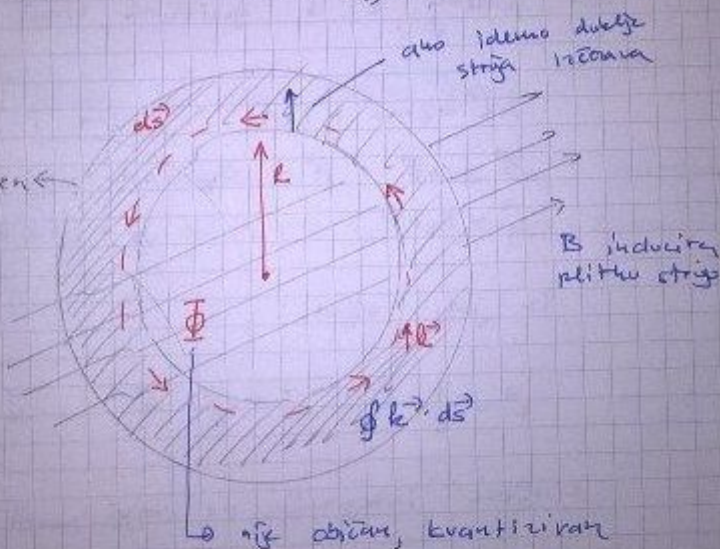 ako idemo dublje
struja iščezava
ds⃗
R
B inducira
plitku struju
Φ
k⃗
∮ k⃗ · ds⃗
nije običan, kvantiziran